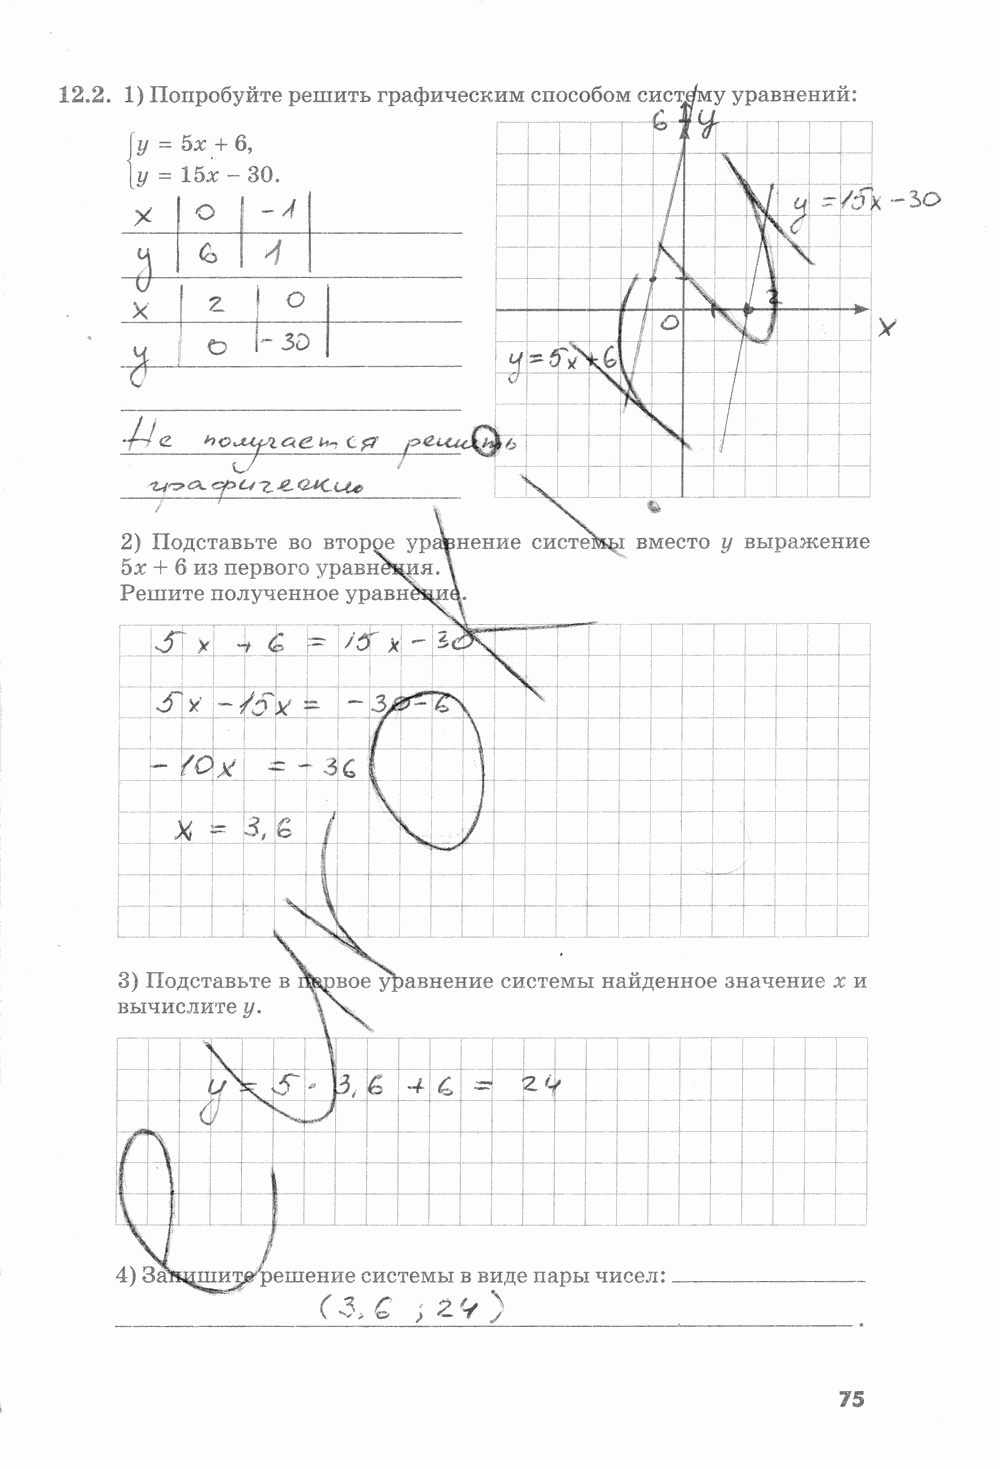 12.2. 1) Попробуйте решить графическим способом систему уравнений:
y = 5x + 6,
y = 15x – 30.
x 0 -1
y 6 1
x 2 0
y 0 -30
Не получается решить
графически
6 y
y = 15x - 30
2
0
x
y = 5x + 6
2) Подставьте во второе уравнение системы вместо y выражение
5x + 6 из первого уравнения.
Решите полученное уравнение.
5x + 6 = 15x - 30
5x - 15x = -30 - 6
-10x = -36
x = 3,6
3) Подставьте в первое уравнение системы найденное значение x и
вычислите y.
y = 5 · 3,6 + 6 = 24
4) Запишите решение системы в виде пары чисел:
(3,6 ; 24)
.
75